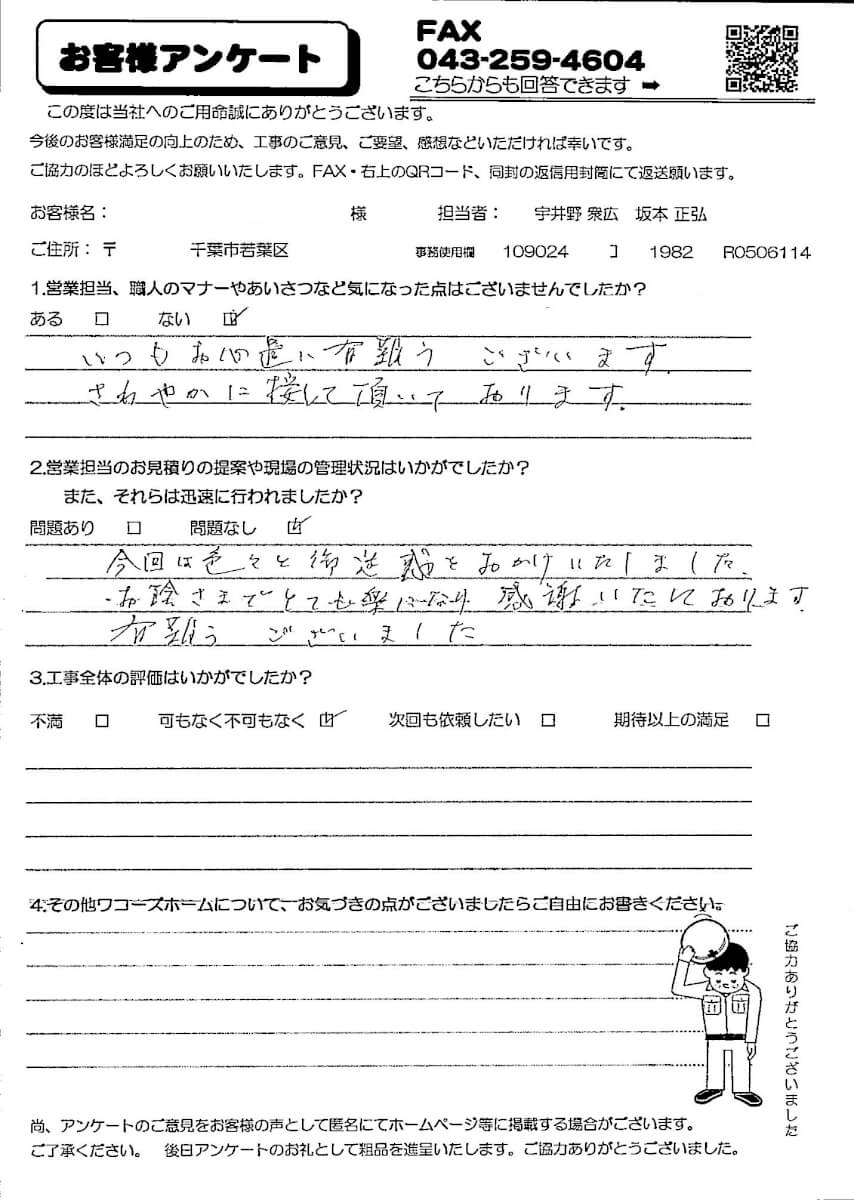 お客様アンケート
FAX
043-259-4604
こちらからも回答できます ➡
この度は当社へのご用命誠にありがとうございます。
今後のお客様満足の向上のため、工事のご意見、ご要望、感想などいただければ幸いです。
ご協力のほどよろしくお願いいたします。FAX・右上のQRコード、同封の返信用封筒にて返送願います。
お客様名： 様 担当者： 宇井野 衆広 坂本 正弘
ご住所：〒 千葉市若葉区 事務使用欄 109024 コ 1982 R0506114
1.営業担当、職人のマナーやあいさつなど気になった点はございませんでしたか？
ある □ ない ☑
いつもお心遣いに有難うございます。
さわやかに接して頂いております。
2.営業担当のお見積りの提案や現場の管理状況はいかがでしたか？
また、それらは迅速に行われましたか？
問題あり □ 問題なし ☑
今回は色々と御迷惑をおかけいたしました、
お陰さまでとても楽になり感謝いたしております
有難うございました
3.工事全体の評価はいかがでしたか？
不満 □ 可もなく不可もなく ☑ 次回も依頼したい □ 期待以上の満足 □
4.その他ワコーズホームについて、お気づきの点がございましたらご自由にお書きください。
ご協力ありがとうございました
尚、アンケートのご意見をお客様の声として匿名にてホームページ等に掲載する場合がございます。
ご了承ください。 後日アンケートのお礼として粗品を進呈いたします。ご協力ありがとうございました。